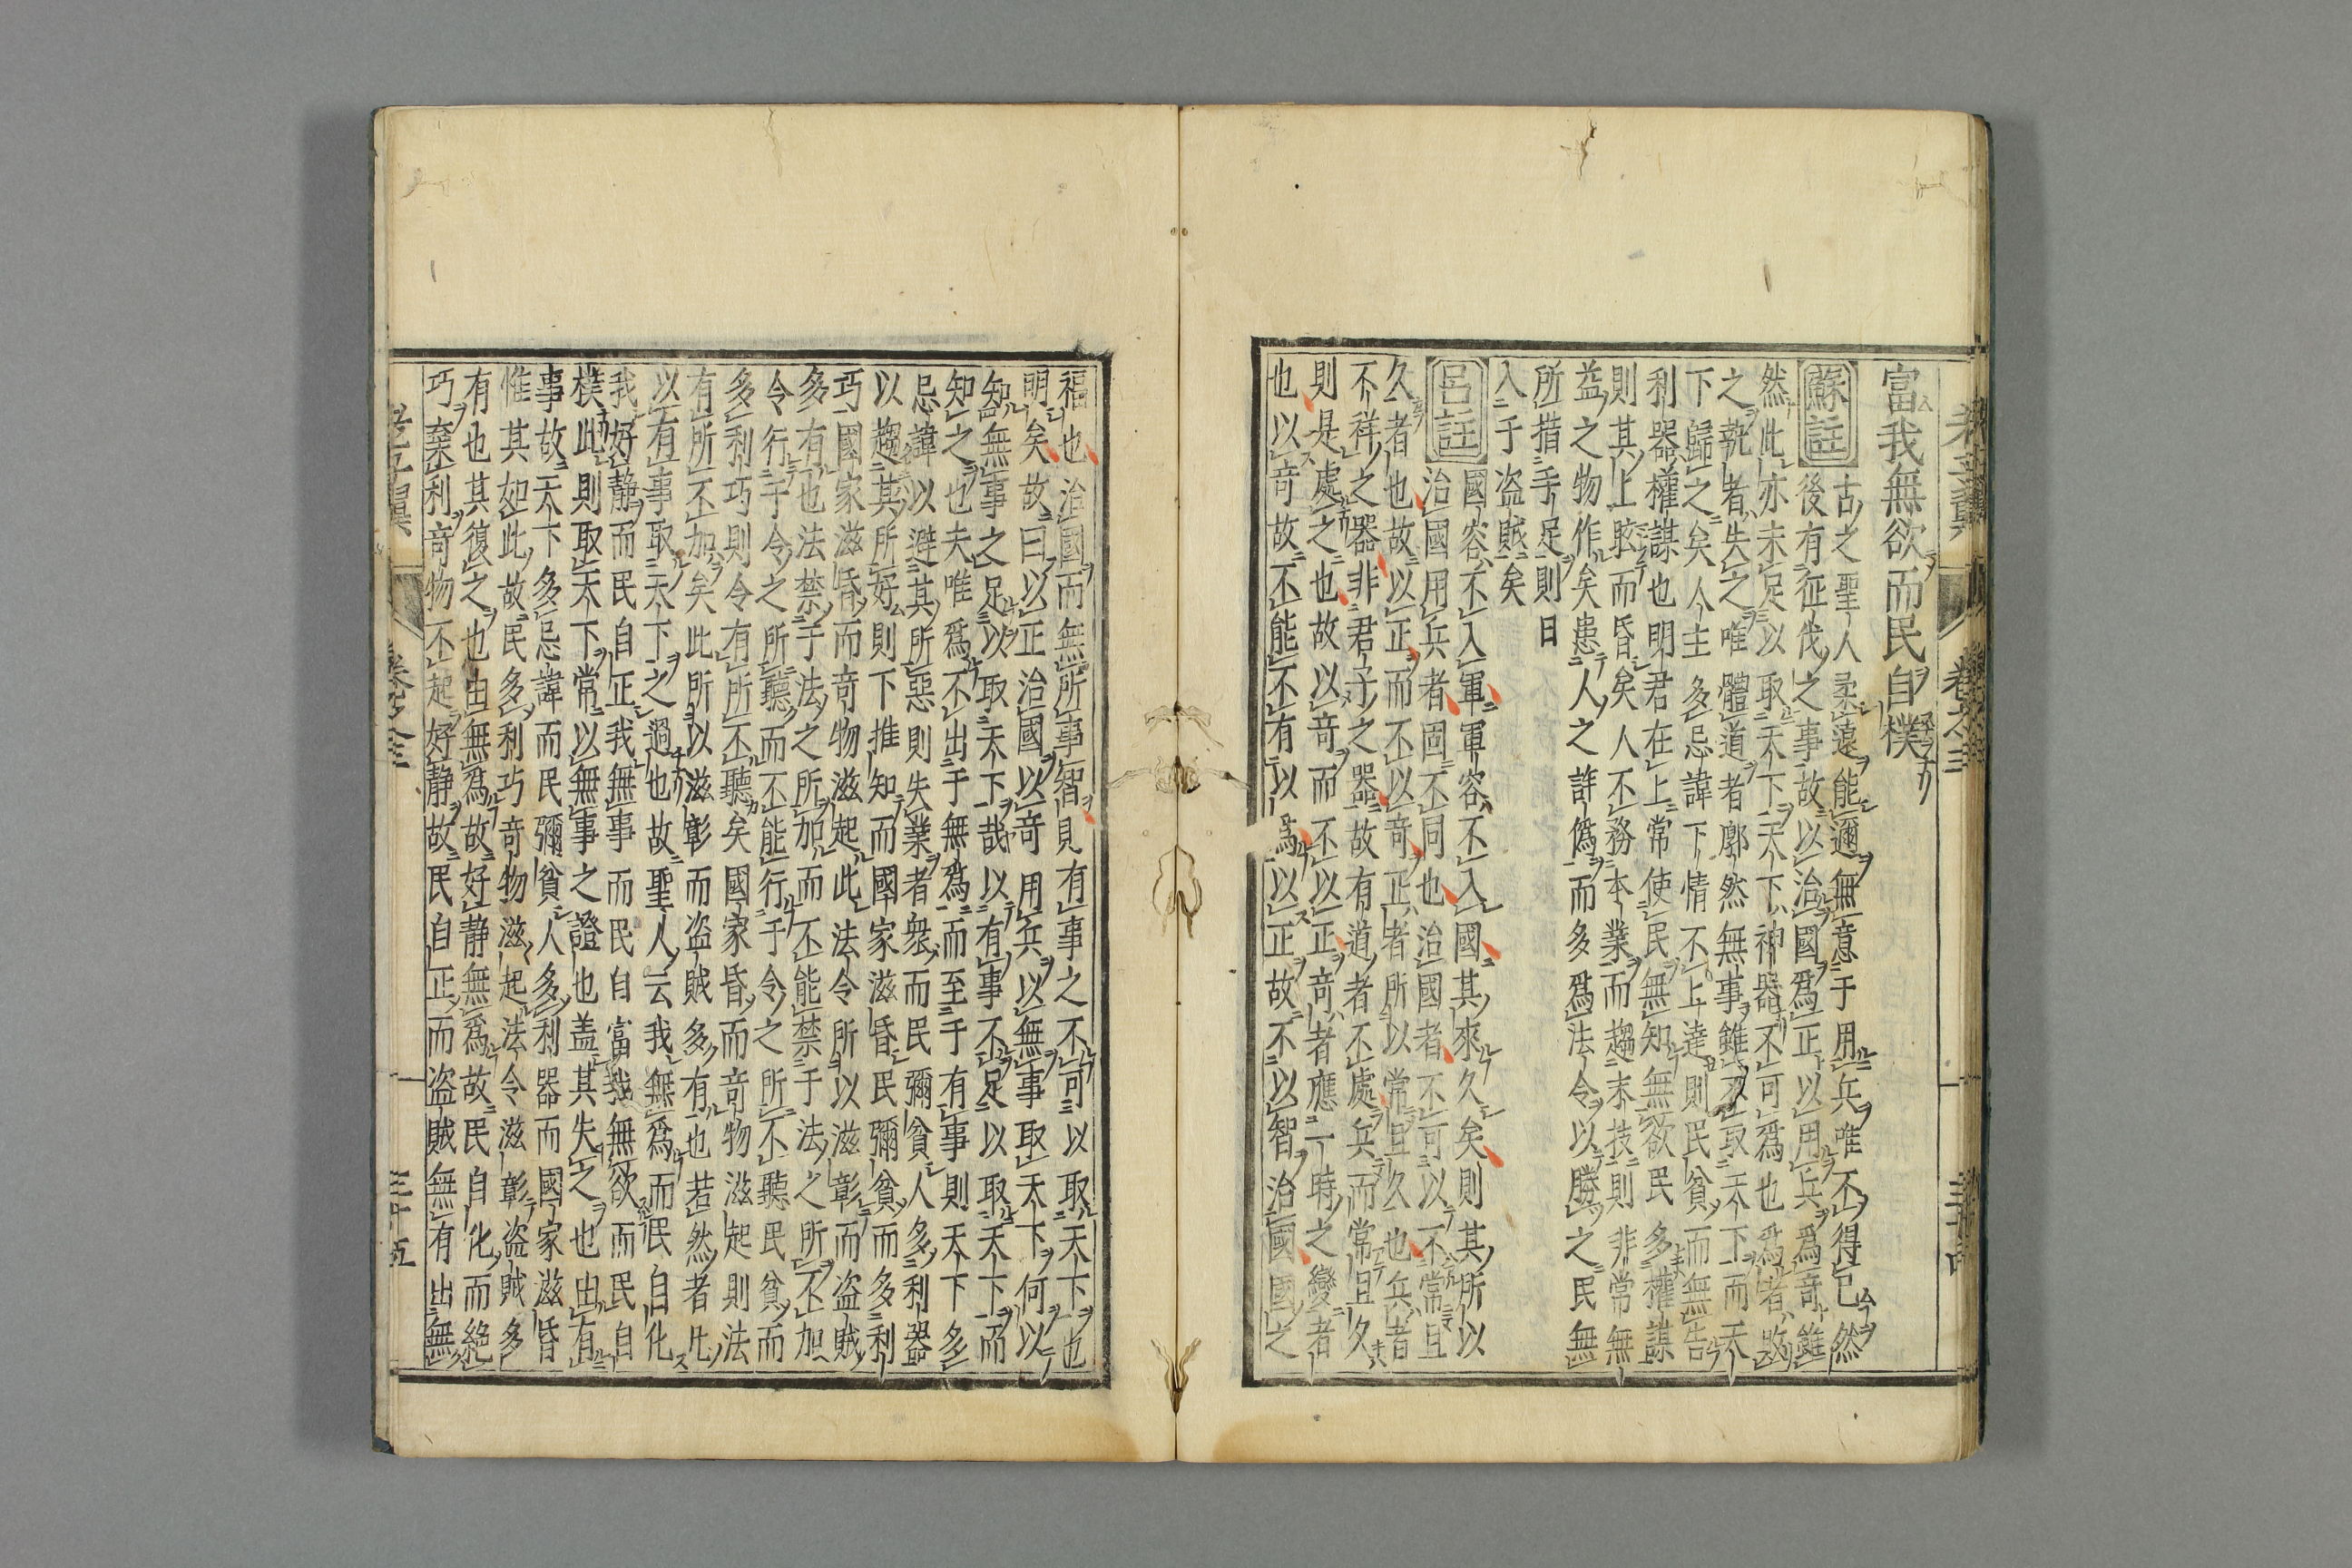 富我無欲而民自樸
蘇註
古之聖人柔遠能邇無意于用兵唯不得已然
後有征伐之事故以治國為正以用兵為奇雖
然此亦未足以取天下天下神器不可為也為者敗
之執者失之唯體道者廓然無事雖不取天下而天
下歸之矣人主多忌諱下情不上達則民貧而無告
利器權謀也明君在上常使民無知無欲民多權謀
則其上眩而昏矣人不務本業而趨末技則非常無
益之物作矣患人之詐偽而多為法令以勝之民無
所措手足則日
入于盗賊矣
呂註
國容不入軍軍容不入國其來久矣則其所以
治國用兵者固不同也治國者不可以不常且
久者也故以正而不以奇正者所以常且久也兵者
不祥之器非君子之器故有道者不處兵而常且久
則是處之也故以奇而不以正奇者應一時之變者
也以奇故不能不有以為以正故不以智治國國之
福也治國而無所事智則有事之不可以取天下也
明矣故曰以正治國以奇用兵以無事取天下何以
知無事之足以取天下哉以有事不足以取天下而
知之也夫唯為不出于無為而至于有事則天下多
忌諱以避其所惡則失業者衆而民彌貧人多利器
以趨其所好則下推知而國家滋昏民彌貧而多利
巧國家滋昏而奇物滋起此法令所以滋彰而盗賊
多有也法禁于法之所加而不能禁于法之所不加
令行于令之所聽而不能行于令之所不聽民貧而
多利巧則令有所不聽矣國家昏而奇物滋起則法
有所不加矣此所以滋彰而盗賊多有也若然者凡
以有事取天下之過也故聖人云我無為而民自化
我好静而民自正我無事而民自富我無欲而民自
樸此則取天下常以無事之證也盖其失之也由有
事故天下多忌諱而民彌貧人多利器而國家滋昏
惟其如此故民多利巧奇物滋起法令滋彰盗賊多
有也其復之也由無為故好静無為故民自化而絶
巧棄利奇物不起好静故民自正而盗賊無有出無
老子翼
卷之三
三十五